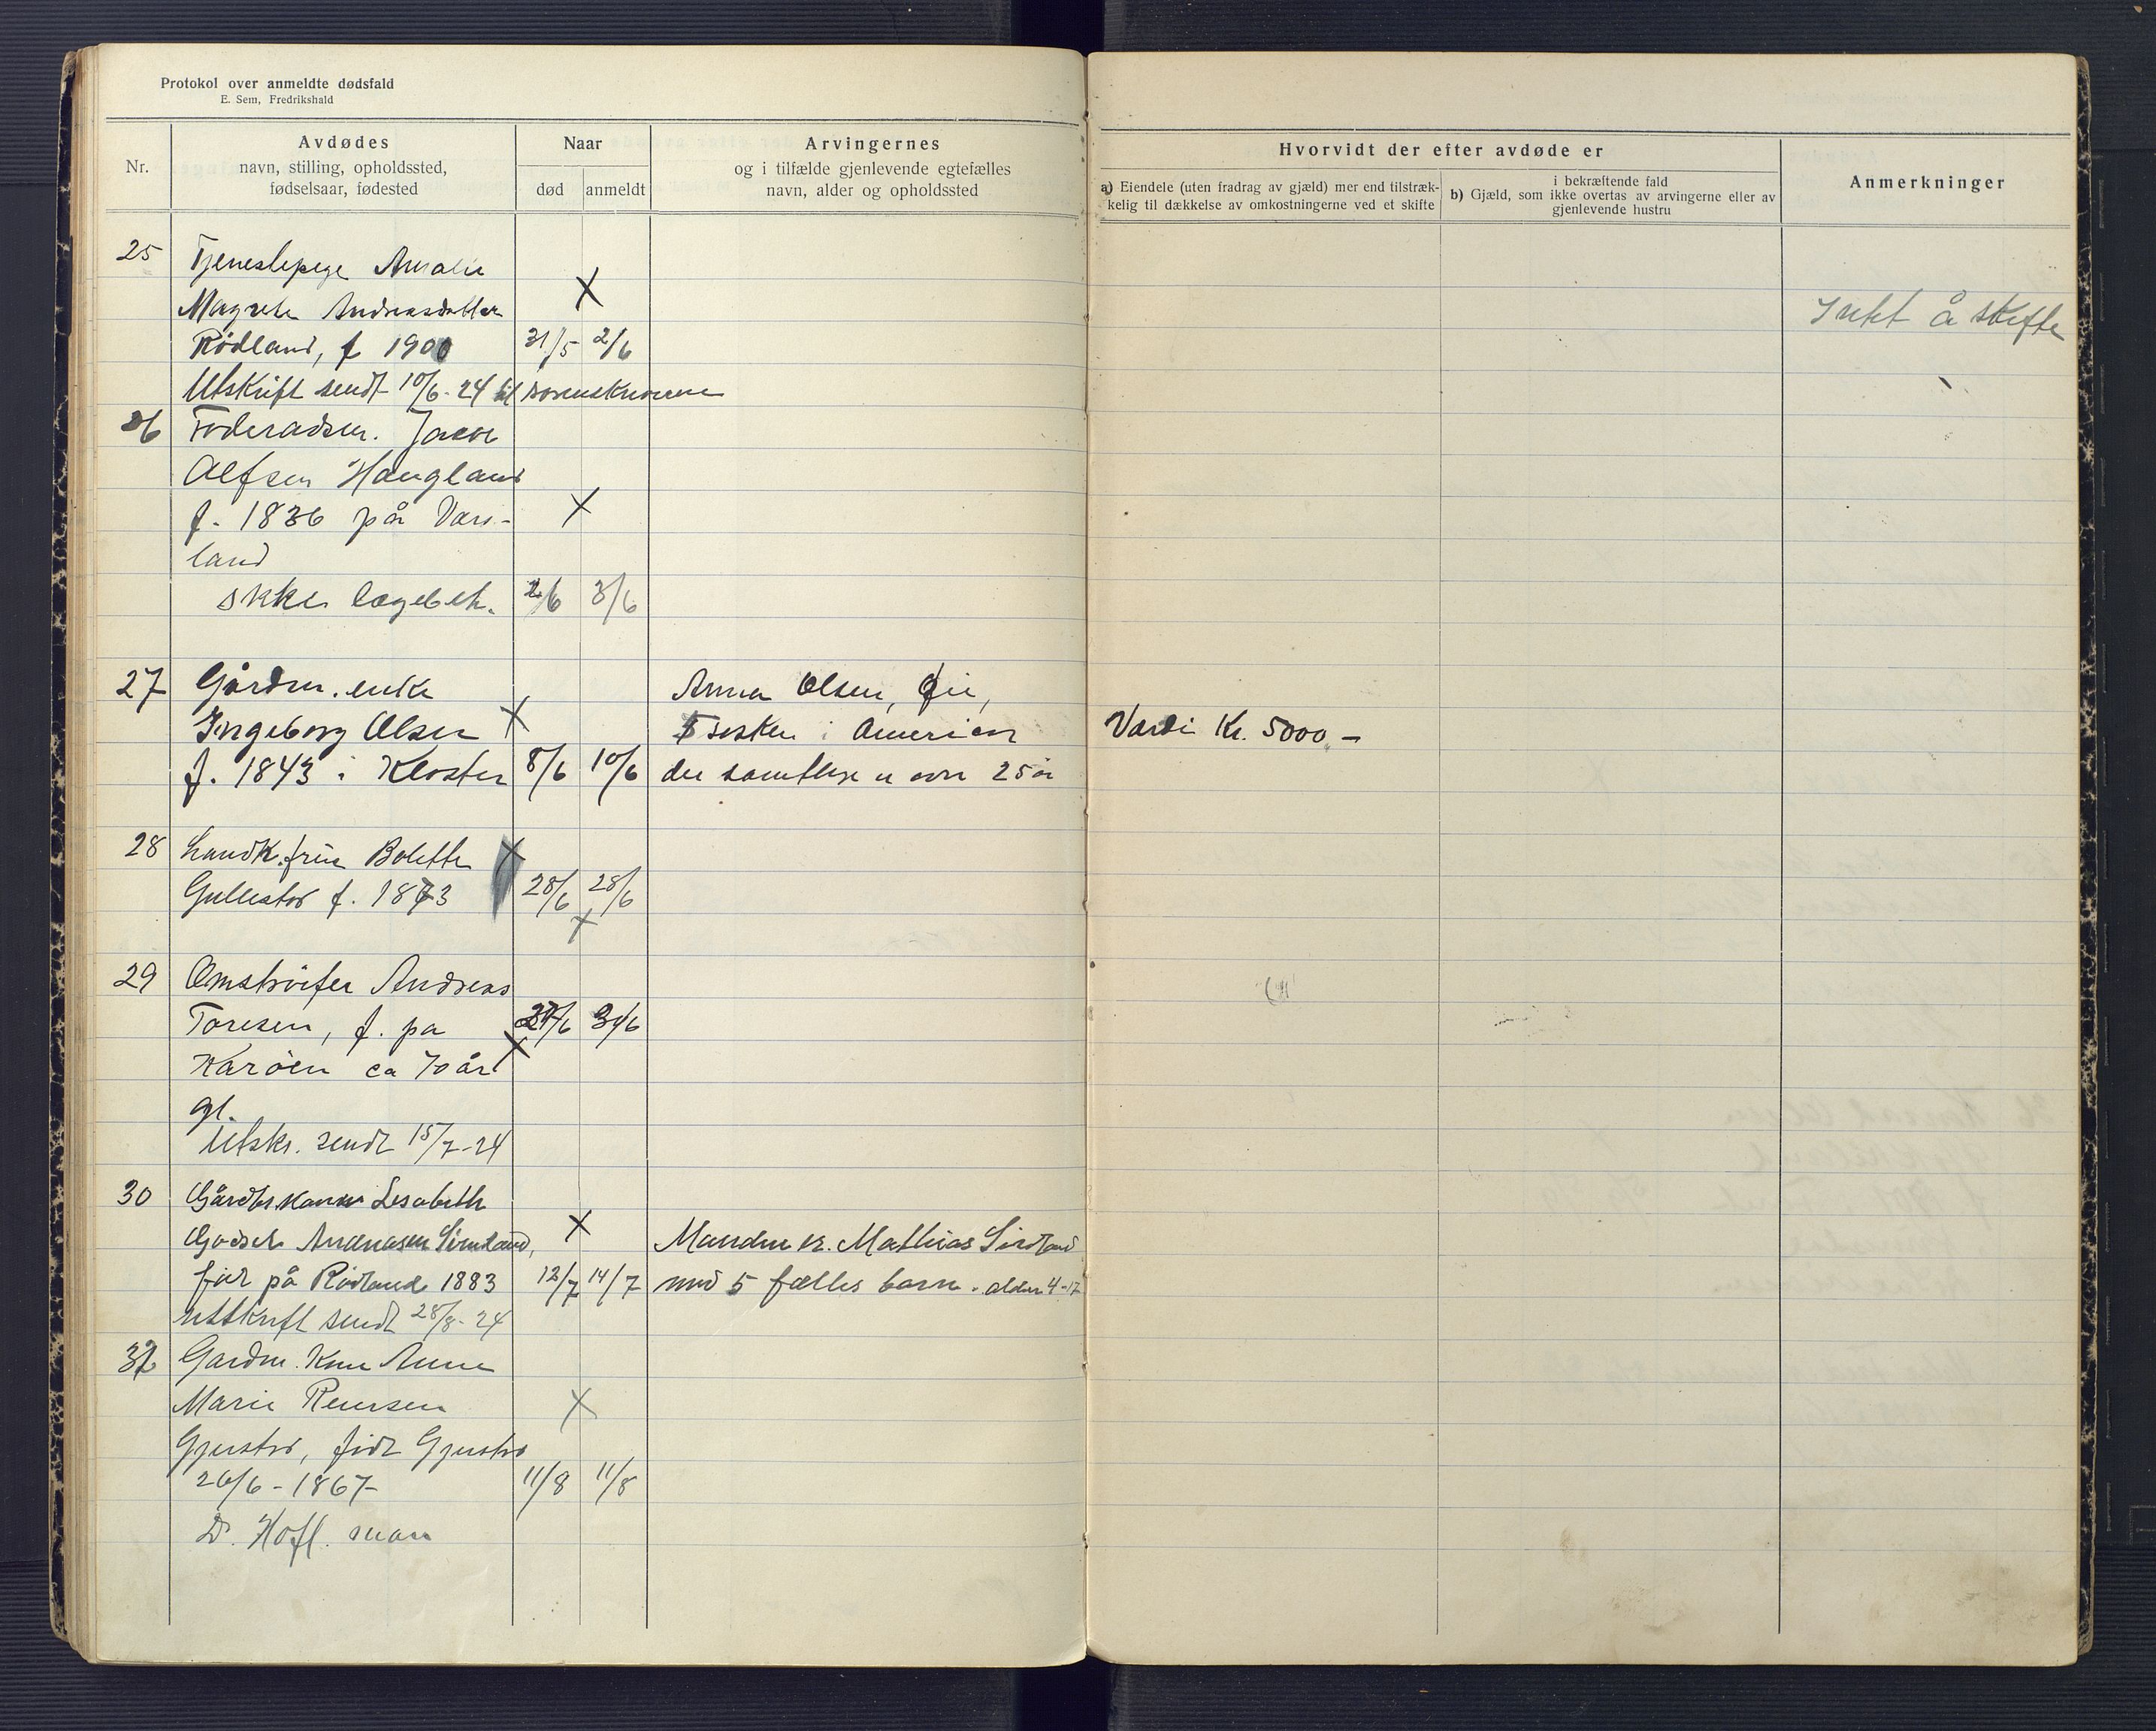 Protokol over anmeldte dødsfald
E. Sem, Fredrikshald
Nr.
Avdødes
navn, stilling, opholdssted,
fødselsaar, fødested
Naar
død anmeldt
Arvingernes
og i tilfælde gjenlevende egtefælles
navn, alder og opholdssted
Hvorvidt der efter avdøde er
a) Eiendele (uten fradrag av gjæld) mer end tilstræk-
kelig til dækkelse av omkostningerne ved et skifte
i bekræftende fald
b) Gjæld, som ikke overtas av arvingerne eller av
gjenlevende hustru
Anmerkninger
25 Tjenestepige Amalie
Magrete Andreasdatter X
Rødland, f 1900 31/5 2/6
Intet å skifte
Utskrift sendt 10/6-24 til sorenskriveren
26 Føderadsm. Jacob
Alfsen Haugland
f. 1836 på X
land
ikke lægebeh. 2/6 3/6
27 Gårdm. enke Anna Olsen,
Ingeborg Olsen X 5 søsken i Amerika Værdi Kr. 5000,-
f. 1843 i Kloster 8/6 10/6 der samtlige er over 25 år
28 Landh. frue Bolette X
Gullestø f. 1873 28/6 28/6
X
29 Omstreifer Andreas
Toresen, f. pa 27/6 30/6
Karøen ca 70 år X
gl.
Utskr. sendt 15/7-24
30 Gårdbr.kone Lisabeth
Andreasen X Manden er. Mathias
på Rødland 1883 12/7 14/7 med 5 fælles barn. alder 4-17
utskrift sendt 28/8-24
32 Gardm. Kone Anne
Marie Reinersen X
Gjerstø, født Gjerstø
26/6-1867 11/8 11/8
D. Hofl.